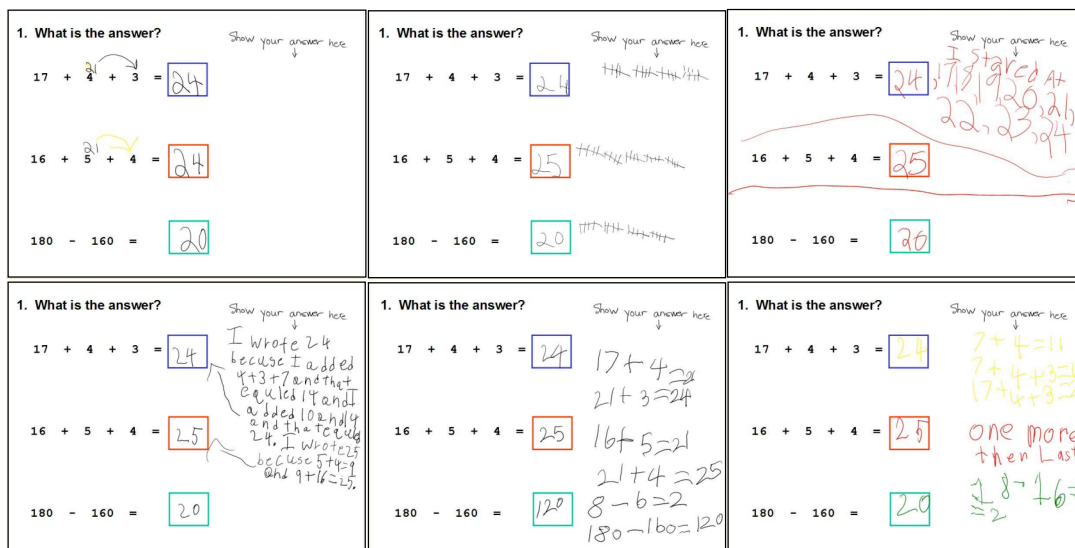 1. What is the answer?
Show your answer here
21
17 + 4 + 3 = 24
21
16 + 5 + 4 = 24
180 - 160 = 20
1. What is the answer?
Show your answer here
17 + 4 + 3 = 24
16 + 5 + 4 = 25
180 - 160 = 20
1. What is the answer?
Show your answer here
I stared At
17 + 4 + 3 = 24 ,17,18,19,20,21,
22,23,24
16 + 5 + 4 = 25
180 - 160 = 20
1. What is the answer?
Show your answer here
17 + 4 + 3 = 24
I wrote 24
becuse I added
4+3+7 and that
equled 14 and I
added 10 and 14
and that equled
24. I wrote 25
because 5+4=9
and 9+16=25.
16 + 5 + 4 = 25
180 - 160 = 20
1. What is the answer?
Show your answer here
17 + 4 + 3 = 24
17+4=21
21+3=24
16 + 5 + 4 = 25
16+5=21
21+4=25
180 - 160 = 120
8-6=2
180-160=120
1. What is the answer?
Show your answer here
17 + 4 + 3 = 24
7+4=11
7+4+3=
17+4+3=
16 + 5 + 4 = 25
one more
then Last
180 - 160 = 20
18-16=
=2